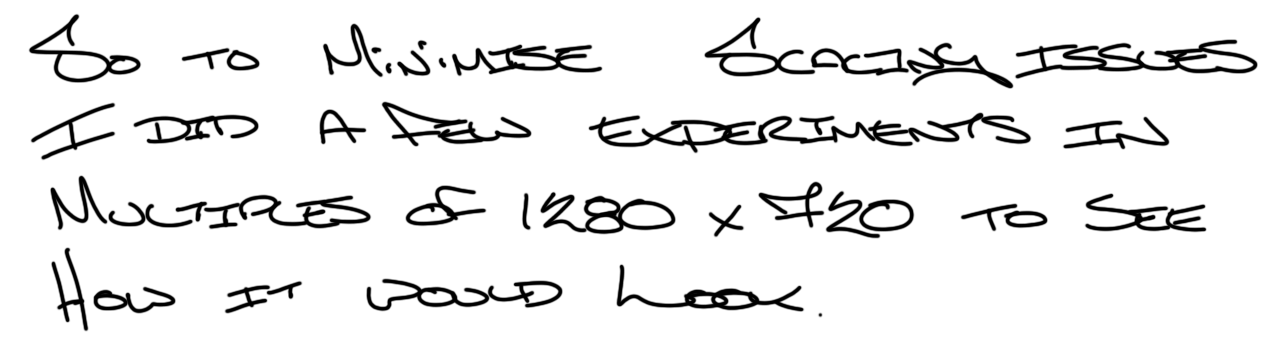 So to Minimise Scaling issues
I did a few experiments in
Multiples of 1280 x 720 to see
How it would look.